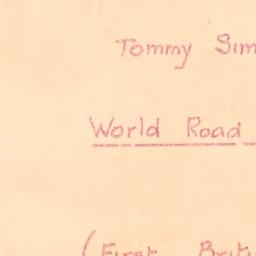 Tommy Sim
World Road
(First Briti